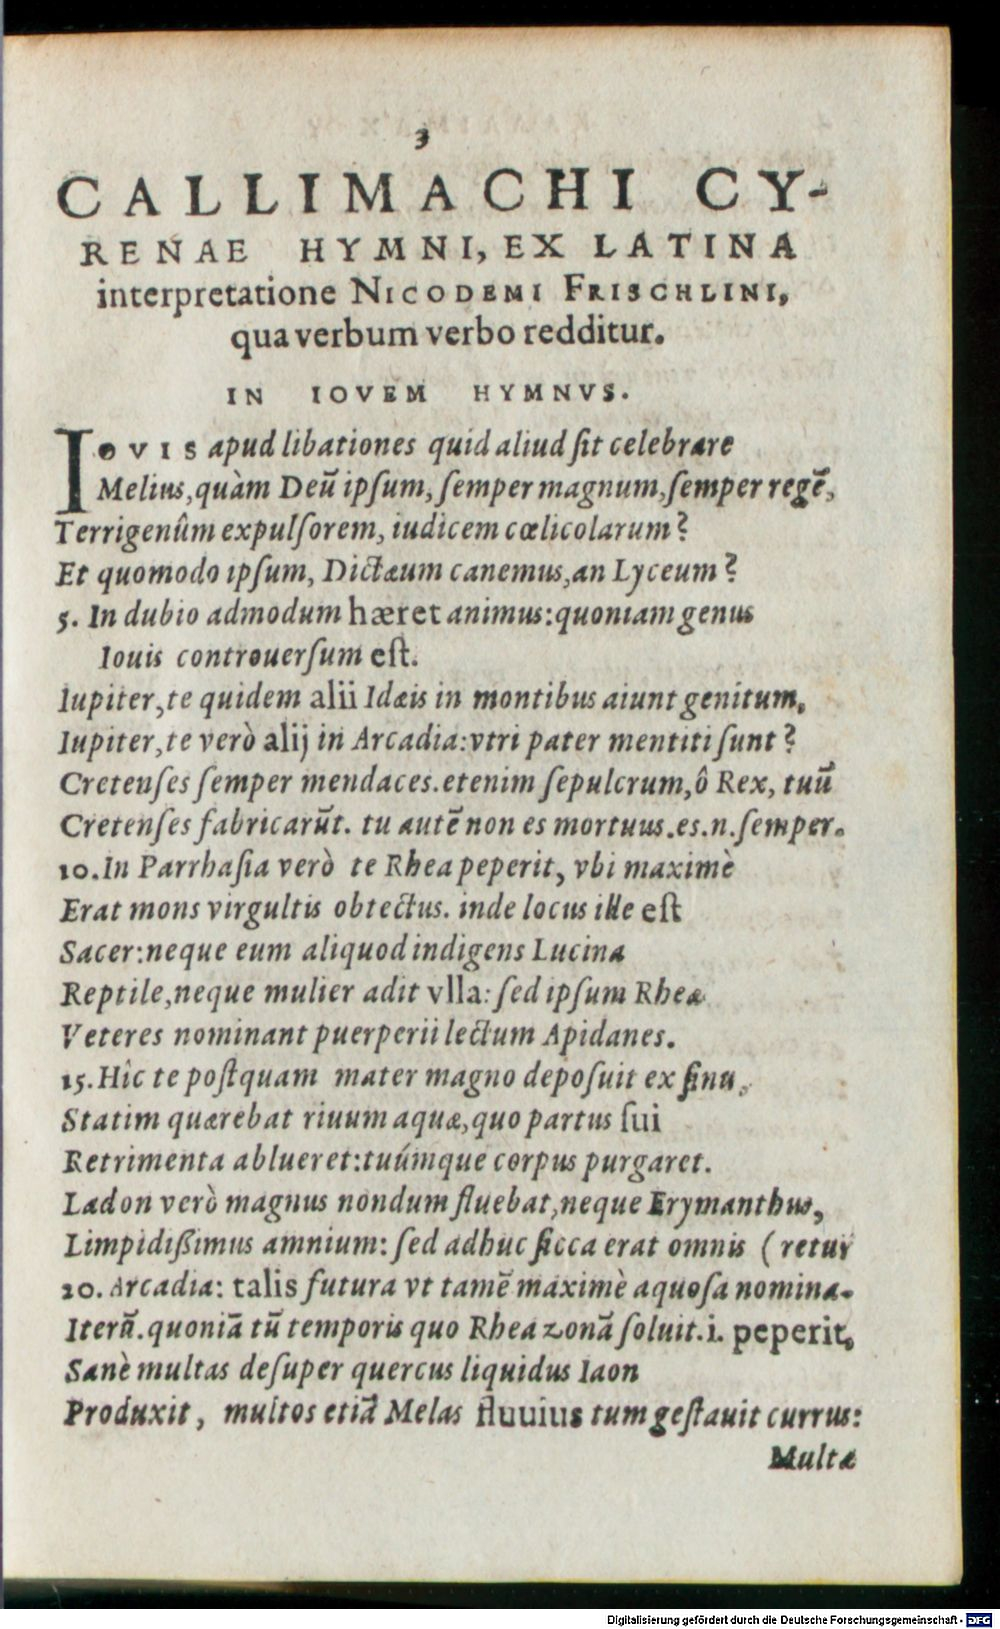 3
CALLIMACHI CY-
RENAE HYMNI, EX LATINA
interpretatione NICODEMI FRISCHLINI,
qua verbum verbo redditur.
IN IOVEM HYMNVS.
IOVIS apud libationes quid aliud ſit celebrare
Melius, quàm Deū ipſum, ſemper magnum, ſemper regē,
Terrigenûm expulſorem, iudicem cœlicolarum?
Et quomodo ipſum, Dictæum canemus, an Lyceum?
5. In dubio admodum hæret animus: quoniam genus
Iouis controuerſum est.
Iupiter, te quidem alii Idæis in montibus aiunt genitum,
Iupiter, te verò alij in Arcadia: vtri pater mentiti ſunt?
Cretenſes ſemper mendaces. etenim ſepulcrum, ô Rex, tuū
Cretenſes fabricarūt. tu autē non es mortuus. es. n. ſemper.
10. In Parrhaſia verò te Rhea peperit, vbi maximè
Erat mons virgultis obtectus. inde locus ille eſt
Sacer: neque eum aliquod indigens Lucina
Reptile, neque mulier adit vlla: ſed ipſum Rheæ
Veteres nominant puerperii lectum Apidanes.
15. Hîc te poſtquam mater magno depoſuit ex ſinu,
Statim quærebat riuum aquæ, quo partus ſui
Retrimenta ablueret: tuúmque corpus purgaret.
Ladon verò magnus nondum fluebat, neque Erymanthus,
Limpidißimus amnium: ſed adhuc ſicca erat omnis (retur
20. Arcadia: talis futura vt tamē maximè aquoſa nomina-
Iterū. quoniā tū temporis quo Rhea zonā ſoluit. i. peperit,
Sanè multas deſuper quercus liquidus Iaon
Produxit, multos etiā Melas fluuius tum geſtauit currus:
Multæ
Digitalisierung gefördert durch die Deutsche Forschungsgemeinschaft - DFG